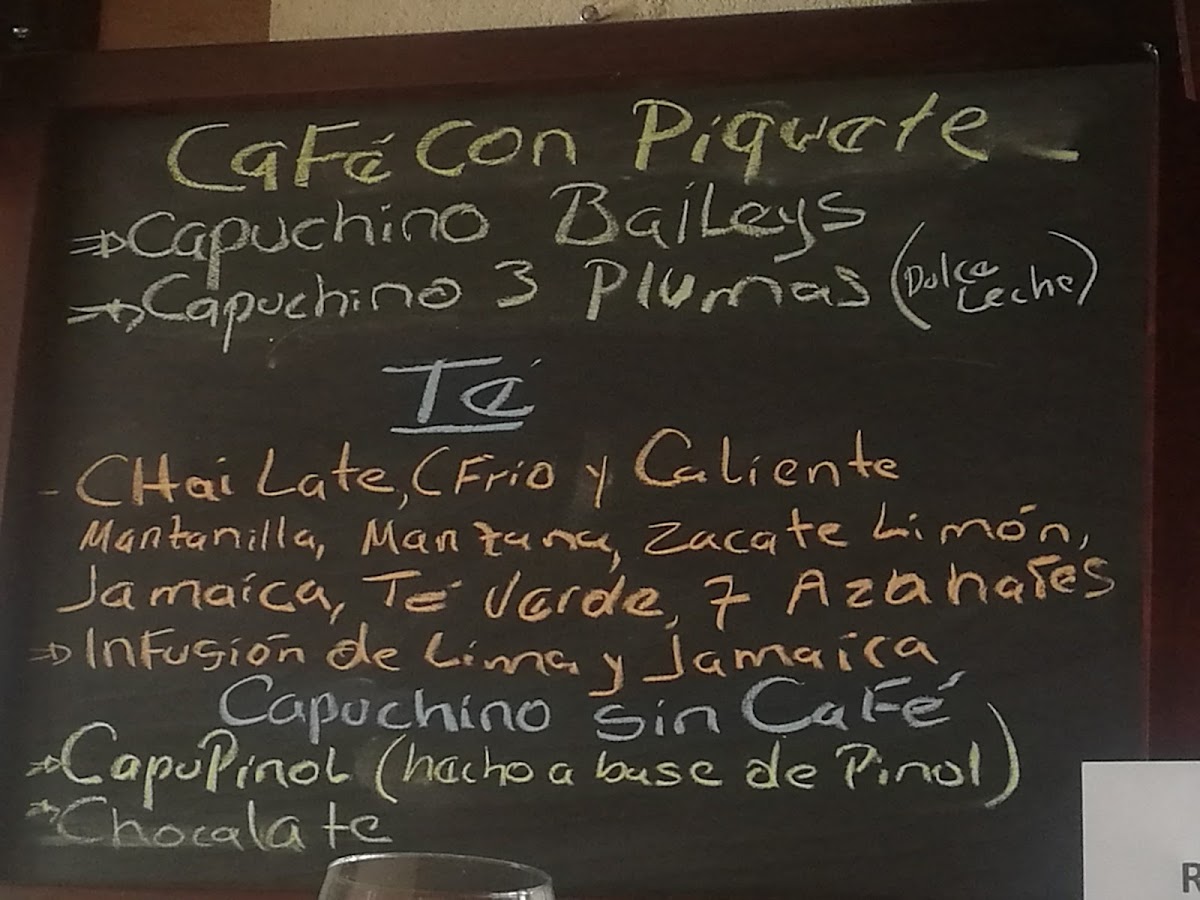 Café con Piquete
⇒Capuchino Baileys
⇒Capuchino 3 Plumas (Dulce Leche)
Té
- CHai Late, (Frio y Caliente
Manzanilla, Manzana, Zacate Limón,
Jamaica, Té Verde, 7 Azahares
⇒Infusión de Lima y Jamaica
Capuchino sin Café
⇒CapuPinol (hecho a base de Pinol)
⇒Chocolate
R